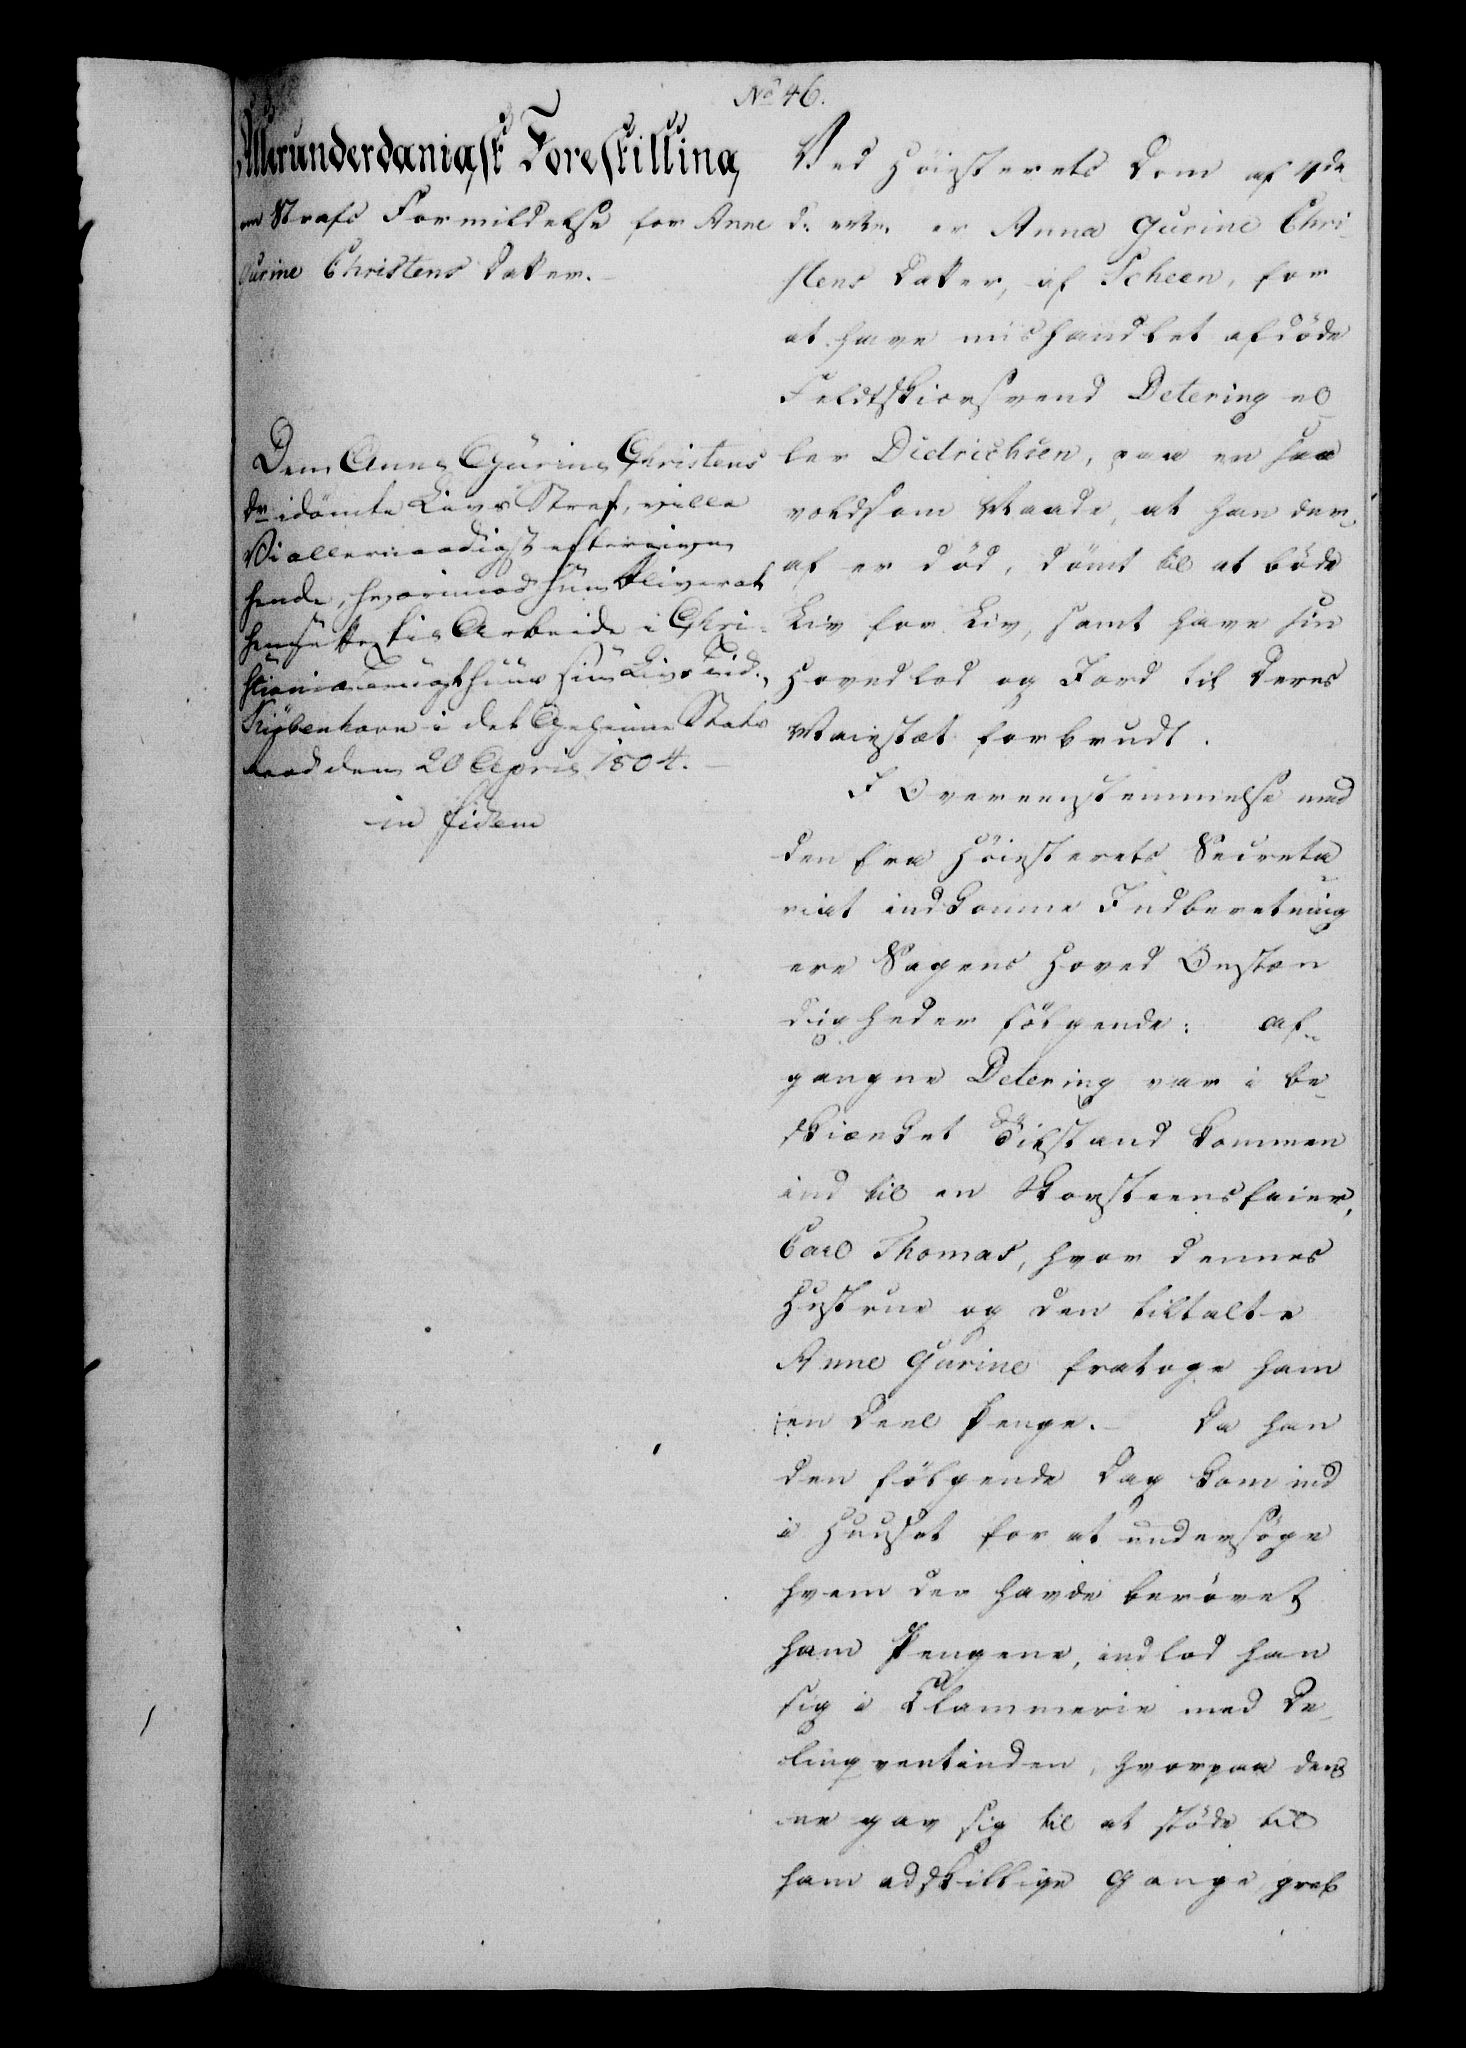 No 46.
Allerunderdanigst Forestilling,
om Strafs Formildelse for Anne
Gurine Christens Datter.
Dem Anne Gurine Christens
Dr idømte Livs Straf, ville
Vi allernaadigst eftergive
hende, hvorimod hun bliver at
hensætte til Arbeide i Chri-
stiania Tugthuus sin Livs Tid.
Kiøbenhavn i det Geheime Stats
Raad den 20 April 1804.
in fidem
Ved Høiesterets Dom af 4de
d: M. er Anna Gurine Chri-
stens Datter, af Scheen, for
at have mishandlet afdøde
Feldtskiærsvend Detering el-
ler Didrichsen, paa en saa
voldsom Maade, at han der-
af er død, dømt til at bøde
Liv for Liv, samt have sin
Hovedlod og Jord til Deres
Majestæt forbrudt.
I Overeenstemmelse med
den fra Høiesterets Secreta-
riat indkomne Indberetning
ere Sagens Hoved Omstæn
digheder følgende: Af-
gangne Detering var i be-
skiænket Tilstand kommen
ind til en Skorsteensfeier,
Carl Thomas, hvor dennes
Hustrue og den tiltalte
Anne Gurine fratoge ham
en Deel Penge. Da han
den følgende Dag kom ind
i Huuset for at undersøge
hvem der havde berøvet
ham Pengene, indlod han
sig i Klammerie med De-
linqventinden, hvorpaa den-
ne gav sig til at støde til
ham adskillige Gange, greb